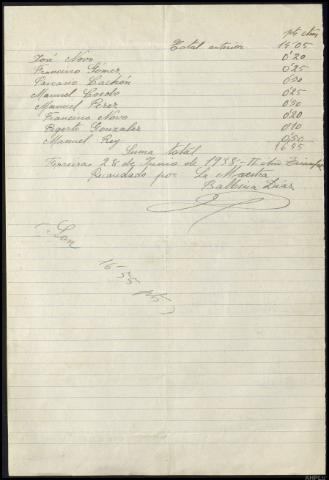 pts cts
Total anterior 14'05
José Novo 0'20
Francisco Gómez 0'25
Cachón 0'30
Manuel 0'25
Manuel Pérez 0'30
Francisco Novo 0'20
Gonzalez 0'10
Manuel Rey 0'30
Suma total
Ferreiras 28 de Junio de 1938, II Año Triunfal
Recaudado por La Maestra
Balbina Díaz
Son